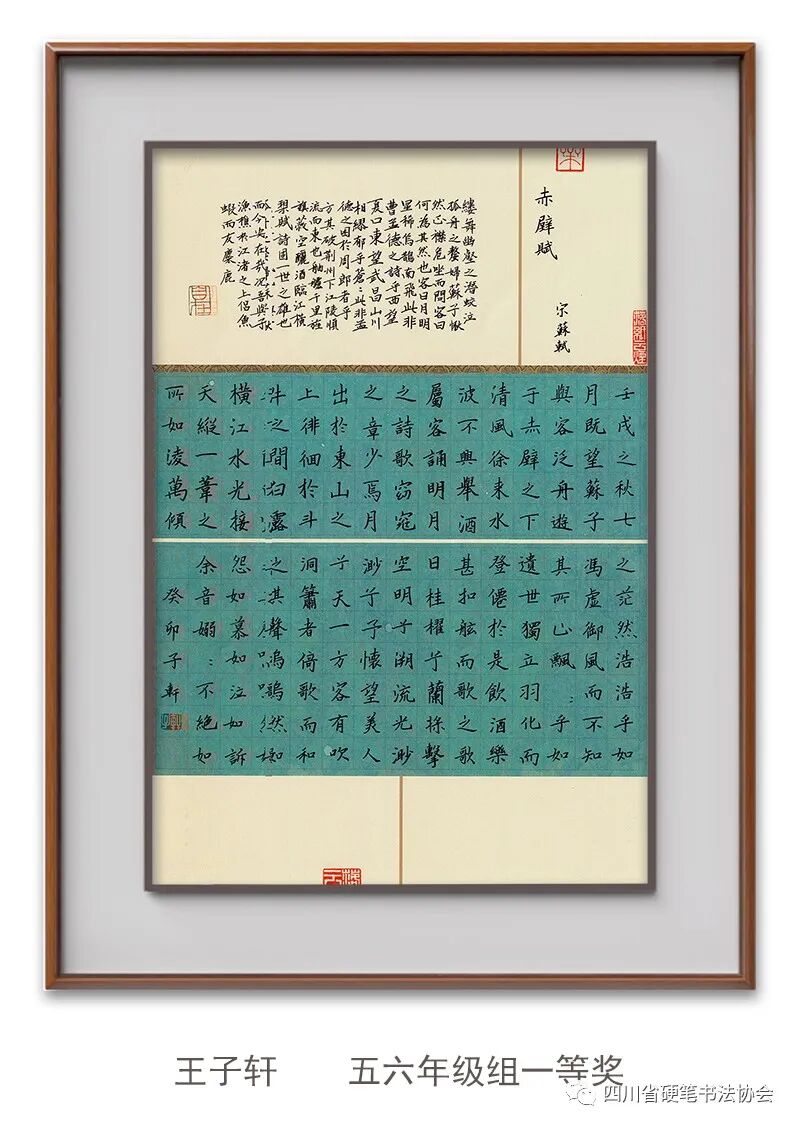 赤壁賦
宋蘇軾
壬戌之秋七
月既望蘇子
與客泛舟遊
于赤壁之下
清風徐来水
波不興舉酒
屬客誦明月
之詩歌窈窕
之章少焉月
出於東山之
上徘徊於斗
牛之間白露
橫江水光接
天縱一葦之
所如淩萬頃
之茫然浩浩乎如
馮虛御風而不知
其所止飄:乎如
遺世獨立羽化而
登僊於是飲酒樂
甚扣舷而歌之歌
曰桂櫂兮蘭槳擊
空明兮溯流光渺
渺兮予懷望美人
兮天一方客有吹
洞簫者倚歌而和
之其聲嗚嗚然如
怨如慕如泣如訴
余音嫋:不絕如
縷舞幽壑之潜蛟泣
孤舟之嫠婦蘇子愀
然正襟危坐而問客曰
何為其然也客曰月明
星稀烏鵲南飛此非
曹孟德之詩乎西望
夏口東望武昌山川
相繆郁乎蒼:此非孟
德之困於周郎者乎
方其破荆州下江陵順
流而東也舳艫千里旌
旗蔽空釃酒臨江橫
槊賦詩固一世之雄也
而今安在哉況吾與子
漁樵於江渚之上侶魚
蝦而友麋鹿
癸卯子軒
王子轩 五六年级组一等奖
四川省硬笔书法协会